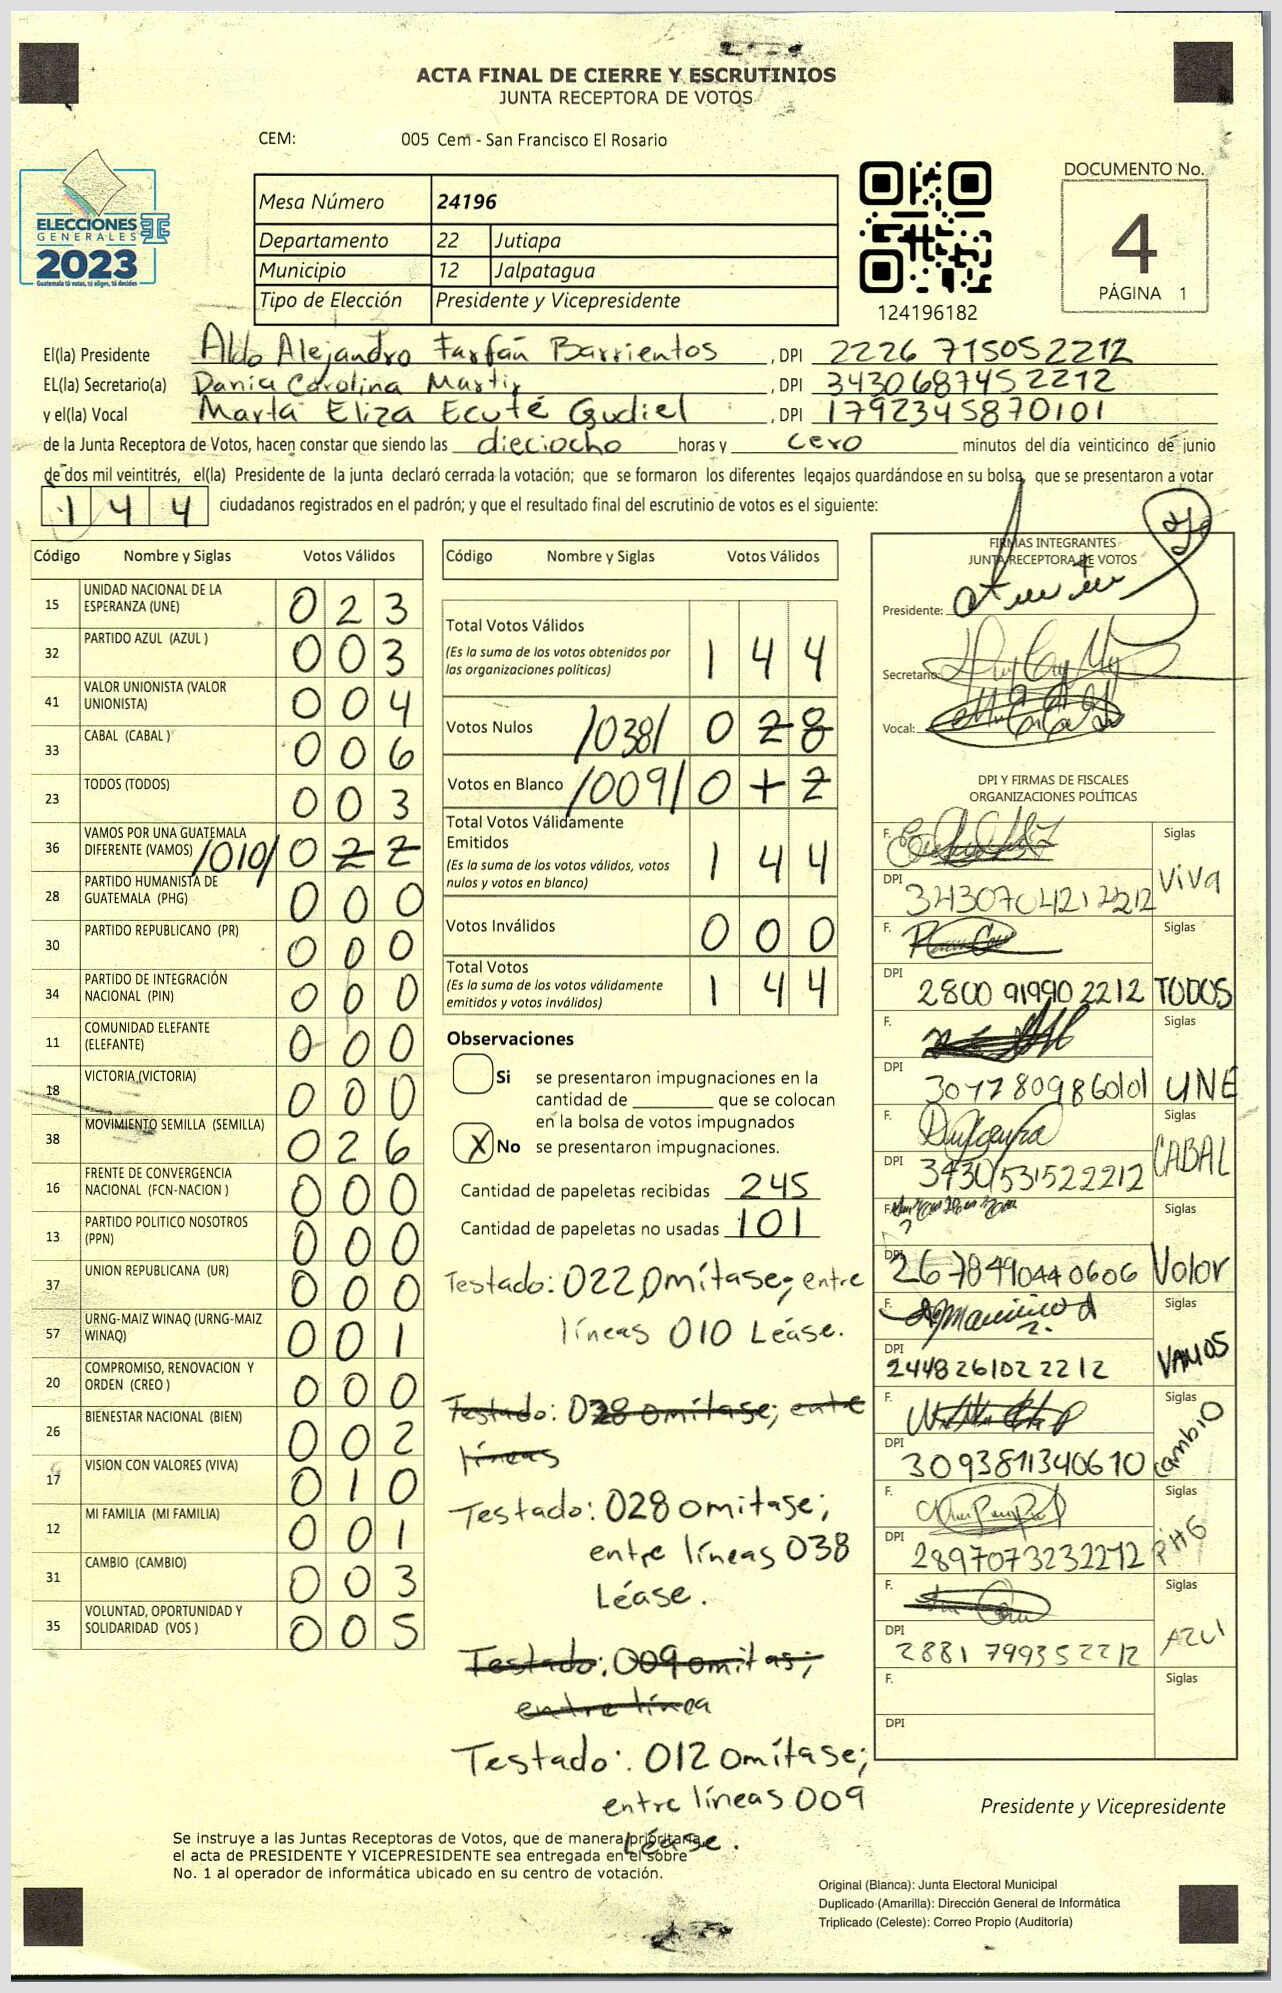 ACTA FINAL DE CIERRE Y ESCRUTINIOS
JUNTA RECEPTORA DE VOTOS
CEM: 005 Cem - San Francisco El Rosario
ELECCIONES
GENERALES
2023
Guatemala tú votas, tú eliges, tú decides
Mesa Número 24196
Departamento 22 Jutiapa
Municipio 12 Jalpatagua
Tipo de Elección Presidente y Vicepresidente
124196182
DOCUMENTO No.
4
PÁGINA 1
El(la) Presidente Aldo Alejandro Farfán Barrientos, DPI 2226 715052212
EL(la) Secretario(a) Dania Carolina Martir, DPI 3430687452212
y el(la) Vocal Marta Eliza Ecuté Gudiel, DPI 1792345870101
de la Junta Receptora de Votos, hacen constar que siendo las dieciocho horas y cero minutos del día veinticinco de junio
de dos mil veintitrés, el(la) Presidente de la junta declaró cerrada la votación; que se formaron los diferentes legajos guardándose en su bolsa, que se presentaron a votar
144 ciudadanos registrados en el padrón; y que el resultado final del escrutinio de votos es el siguiente:
Código Nombre y Siglas Votos Válidos
15 UNIDAD NACIONAL DE LA ESPERANZA (UNE) 023
32 PARTIDO AZUL (AZUL ) 003
41 VALOR UNIONISTA (VALOR UNIONISTA) 004
33 CABAL (CABAL ) 006
23 TODOS (TODOS) 003
36 VAMOS POR UNA GUATEMALA DIFERENTE (VAMOS) /010/ 022
28 PARTIDO HUMANISTA DE GUATEMALA (PHG) 000
30 PARTIDO REPUBLICANO (PR) 000
34 PARTIDO DE INTEGRACIÓN NACIONAL (PIN) 000
11 COMUNIDAD ELEFANTE (ELEFANTE) 000
18 VICTORIA (VICTORIA) 000
38 MOVIMIENTO SEMILLA (SEMILLA) 026
16 FRENTE DE CONVERGENCIA NACIONAL (FCN-NACION ) 000
13 PARTIDO POLITICO NOSOTROS (PPN) 000
37 UNION REPUBLICANA (UR) 000
57 URNG-MAIZ WINAQ (URNG-MAIZ WINAQ) 001
20 COMPROMISO, RENOVACION Y ORDEN (CREO ) 000
26 BIENESTAR NACIONAL (BIEN) 002
17 VISION CON VALORES (VIVA) 010
12 MI FAMILIA (MI FAMILIA) 001
31 CAMBIO (CAMBIO) 003
35 VOLUNTAD, OPORTUNIDAD Y SOLIDARIDAD (VOS ) 005
Código Nombre y Siglas Votos Válidos
Total Votos Válidos 144
(Es la suma de los votos obtenidos por
las organizaciones políticas)
Votos Nulos /038/ 028
Votos en Blanco /009/ 0
Total Votos Válidamente
Emitidos 144
(Es la suma de los votos válidos, votos
nulos y votos en blanco)
Votos Inválidos 000
Total Votos 144
(Es la suma de los votos válidamente
emitidos y votos inválidos)
Observaciones
Si se presentaron impugnaciones en la
cantidad de ________ que se colocan
en la bolsa de votos impugnados
X No se presentaron impugnaciones.
Cantidad de papeletas recibidas 245
Cantidad de papeletas no usadas 101
Testado: 022 Omítase; entre
líneas 010 Léase.
Testado: 028 omitase; entre
líneas
Testado: 028 omitase;
entre líneas 038
Léase.
Testado: 009 omitas;
entre línea
Testado: 012 Omítase;
entre líneas 009
Léase.
FIRMAS INTEGRANTES
JUNTA RECEPTORA DE VOTOS
Presidente:
Secretario:
Vocal:
DPI Y FIRMAS DE FISCALES
ORGANIZACIONES POLÍTICAS
F. Siglas
DPI Viva
F. Siglas
DPI 2800 91990 2212 TODOS
F. Siglas
DPI 3077809860101 UNE
F. Siglas
DPI 3430531522212 CABAL
F. Siglas
DPI 2678490440606 Valor
F. Siglas
DPI 2448261022212 VAMOS
F. Siglas
DPI 3093811340610 Cambio
F. Siglas
DPI 2897073232212 PHG
F. Siglas
DPI 2881 799352212 AZUl
F. Siglas
DPI
Presidente y Vicepresidente
Se instruye a las Juntas Receptoras de Votos, que de manera prioritaria,
el acta de PRESIDENTE Y VICEPRESIDENTE sea entregada en el sobre
No. 1 al operador de informática ubicado en su centro de votación.
Original (Blanca): Junta Electoral Municipal
Duplicado (Amarilla): Dirección General de Informática
Triplicado (Celeste): Correo Propio (Auditoría)